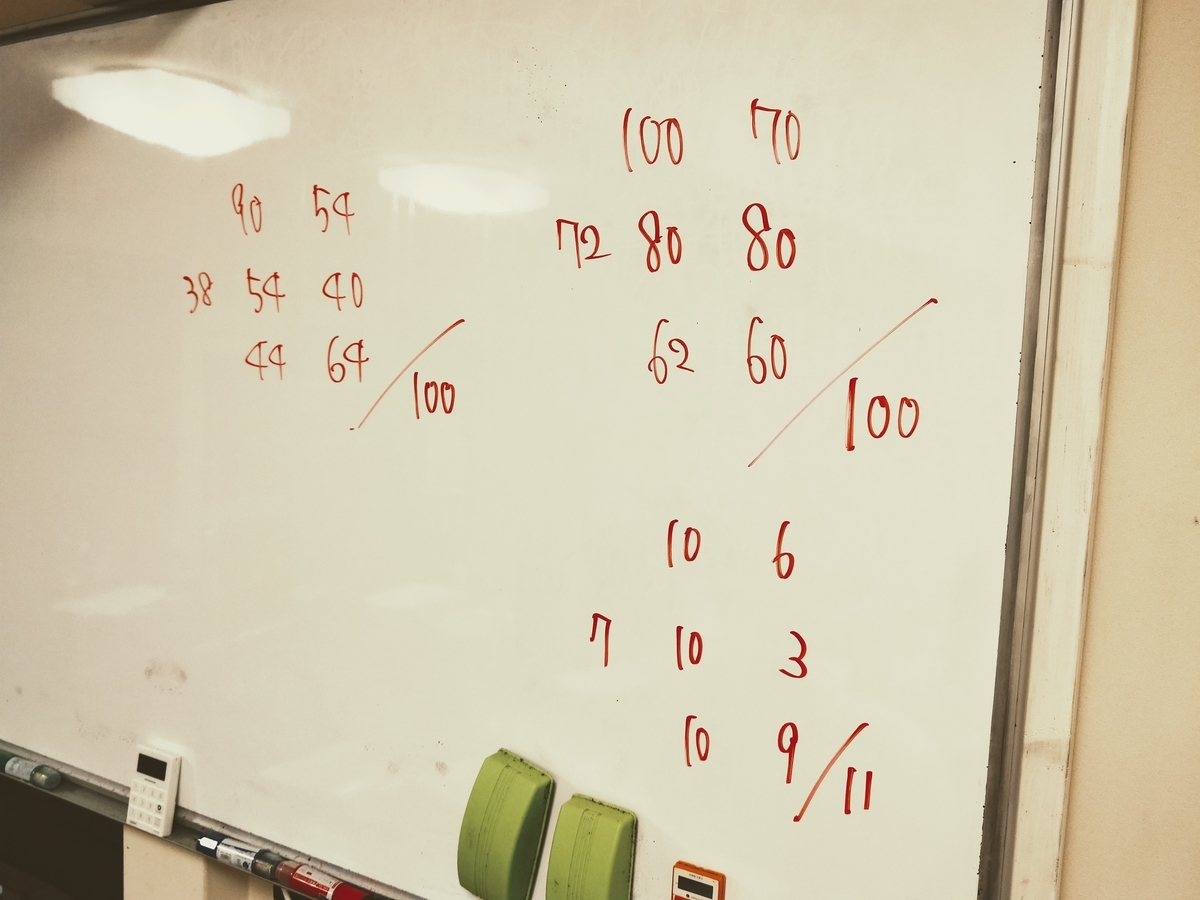 90 54
38 54 40
44 64
/100
100 70
72 80 80
62 60
/100
10 6
7 10 3
10 9
/11